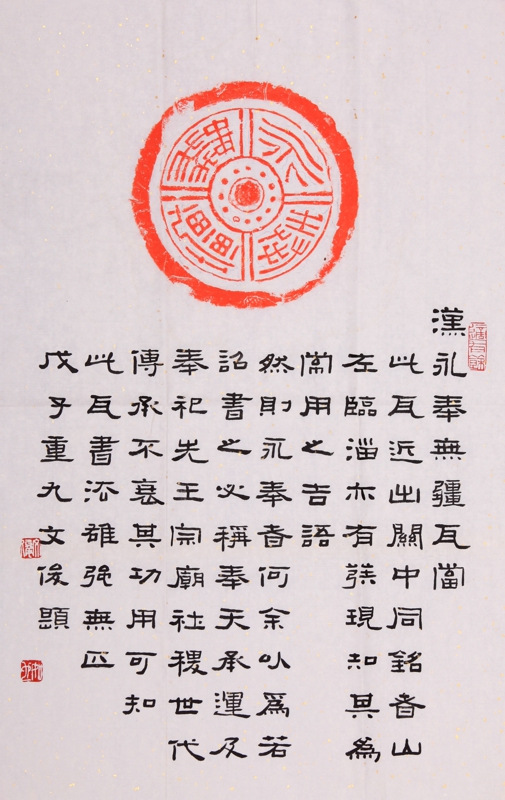 永奉無疆
漢永奉無疆瓦當
此瓦近出關中同銘者山
左臨淄亦有發現知其為
常用之吉語
然則永奉者何余以為若
詔書之必稱奉天承運及
奉祀先王宗廟社稷世代
傳承不衰其功用可知
此瓦書法雄強無匹
戊子重九文俊題